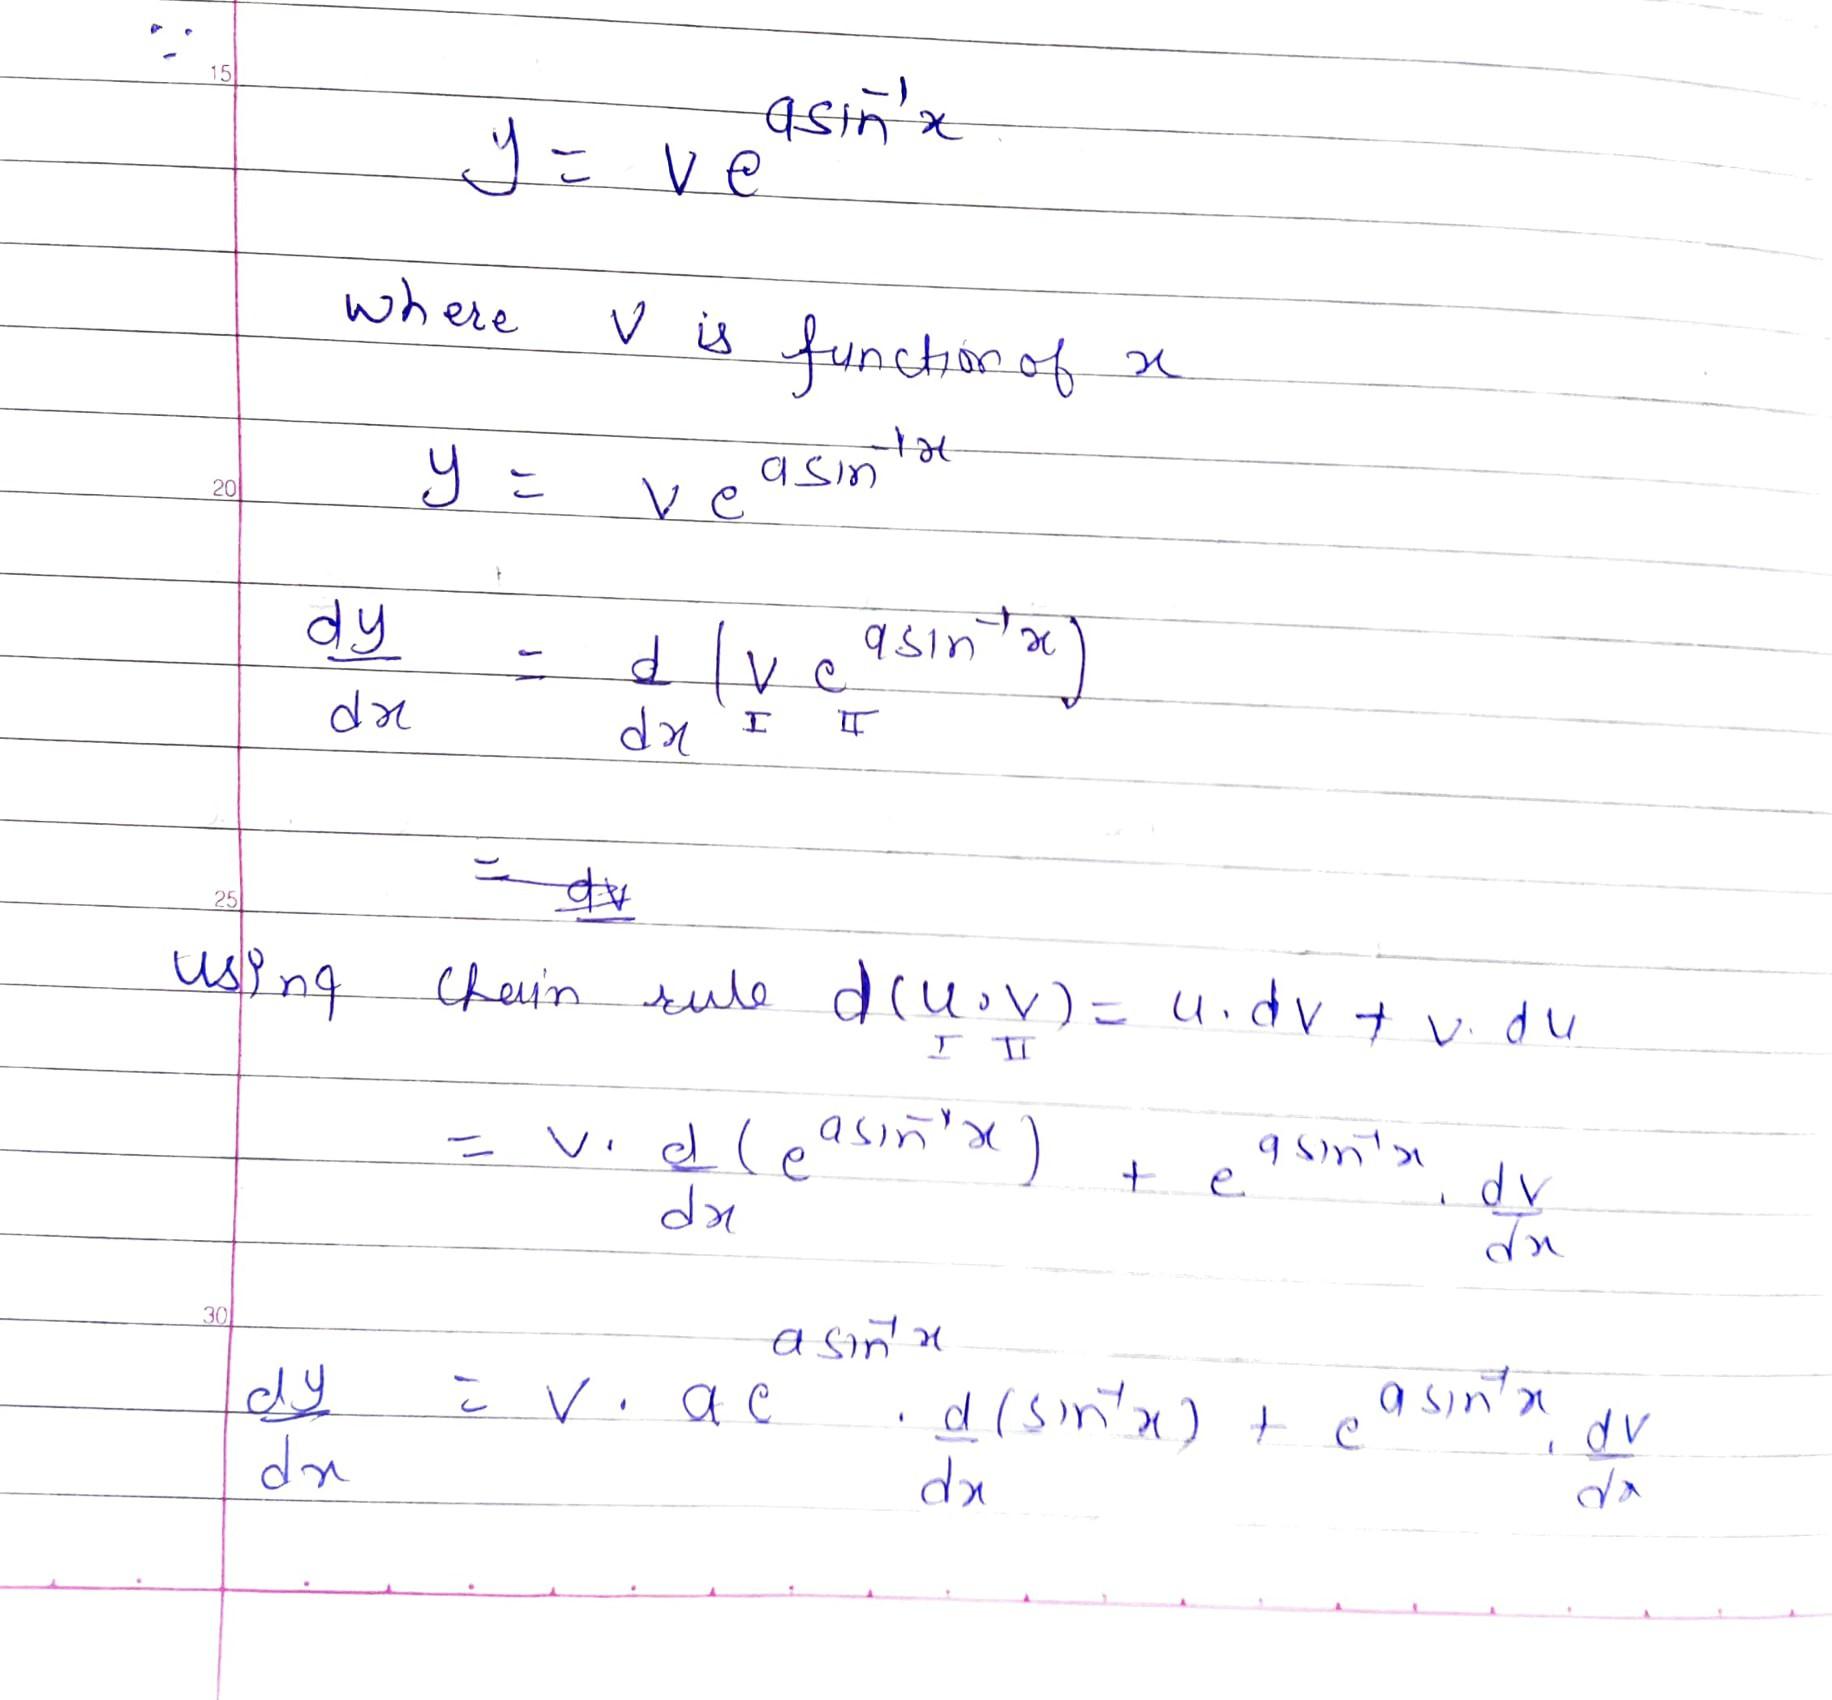 ∵
15
y = v e^{a sin⁻¹x}
where v is function of x
20
y = v e^{a sin⁻¹x}
dy/dx = d/dx (v e^{a sin⁻¹x})
I II
= dv
25
using chain rule d(u.v) = u.dv + v.du
I II
= v. d/dx (e^{a sin⁻¹x}) + e^{a sin⁻¹x} . dv/dx
30
dy/dx = v. a e^{a sin⁻¹x} . d/dx (sin⁻¹x) + e^{a sin⁻¹x} . dv/dx